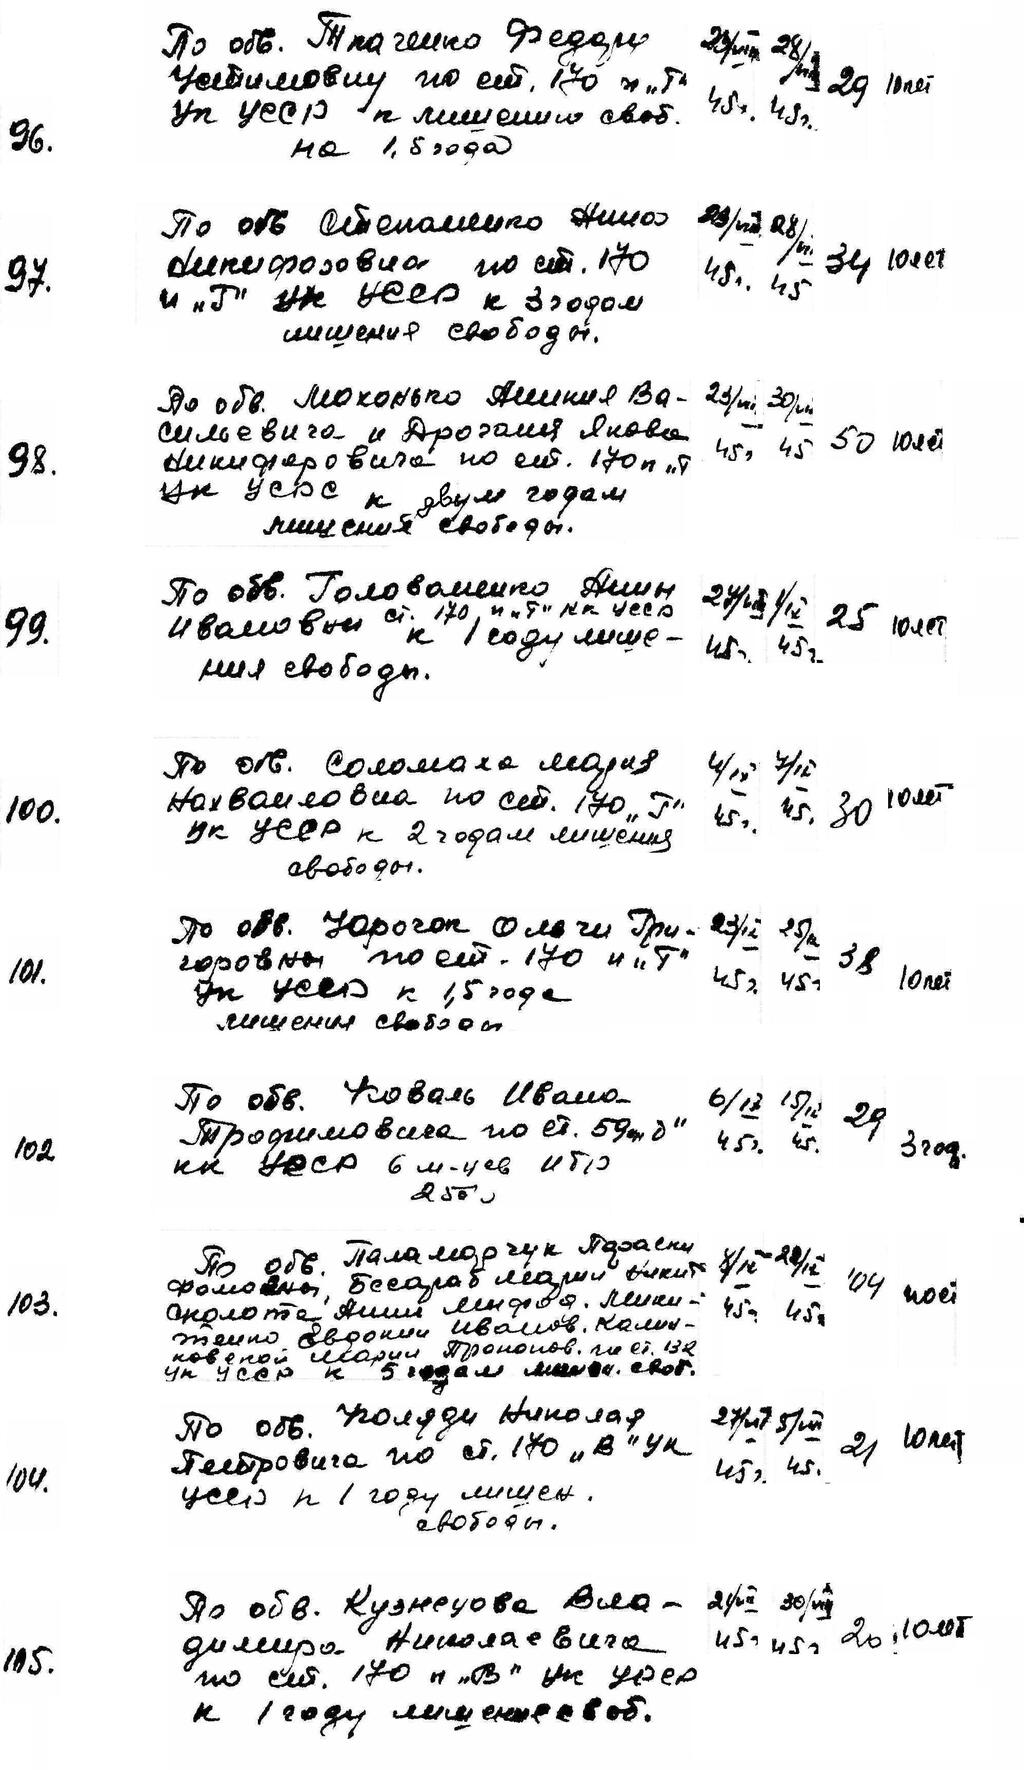 96. По обв. Ткаченко Федору 23/VIII 28/VIII 29 10 лет
Устимовичу по ст. 170 п „Г" 45г. 45г.
УК УССР к лишению своб.
на 1,5 года
97. По обв Степаненко Нина 23/VIII 28/VIII 34 10 лет
Никифоровна по ст. 170 45г. 45
п „Г" УК УССР к 3 годам
лишения свободы.
98. По обв. Моконько Ва- 23/VIII 30/VIII 50 10 лет
сильевича и Якова 45г 45
Никифоровича по ст. 170 п „Г
УК УСРС к двум годам
лишения свободы.
99. По обв. Голованенко Анны 27/VIII 1/IX 25 10 лет
Ивановны ст. 170 п „Г" КК УССР 45г. 45г.
к 1 году лише-
ния свободы.
100. По обв. Соломаха Мария 4/IX 7/IX 30 10 лет
по ст. 170 „Г" 45г. 45.
УК УССР к 2 годам лишения
свободы.
101. По обв. Ольги Гри- 23/IX 25/IX 38 10 лет
горовны по ст. 170 п „Г" 45г. 45г
УК УССР к 1,5 года
лишения свободы
102 По обв. Коваль Ивана 6/IX 15/IX 29 3 год.
Трофимовича по ст. 59 45г. 45.
КК УРСР 6 м-цев ИТР
25%
103. По обв. Паламарчук Параски 8/IX 28/IX 104 пост
Фомовны, Бессараб Марии Никит 45г. 45г.
Анны Мики-
тенко Евдокии Иванов. Калин-
ковской Марии Прокопов. по ст. 132
УК УССР к 5 годам лишен. своб.
104. По обв. Коляди Николая 27/VII 5/VIII 21 10 лет
Петровича по ст. 170 „В" УК 45г. 45.
УССР к 1 году лишен.
свободы.
105. По обв. Кузнецова Вла- 21/VII 30/VIII 20 10 лет
димира Николаевича 45г 45г
по ст. 170 п „В" УК УРСР
к 1 году лишение своб.